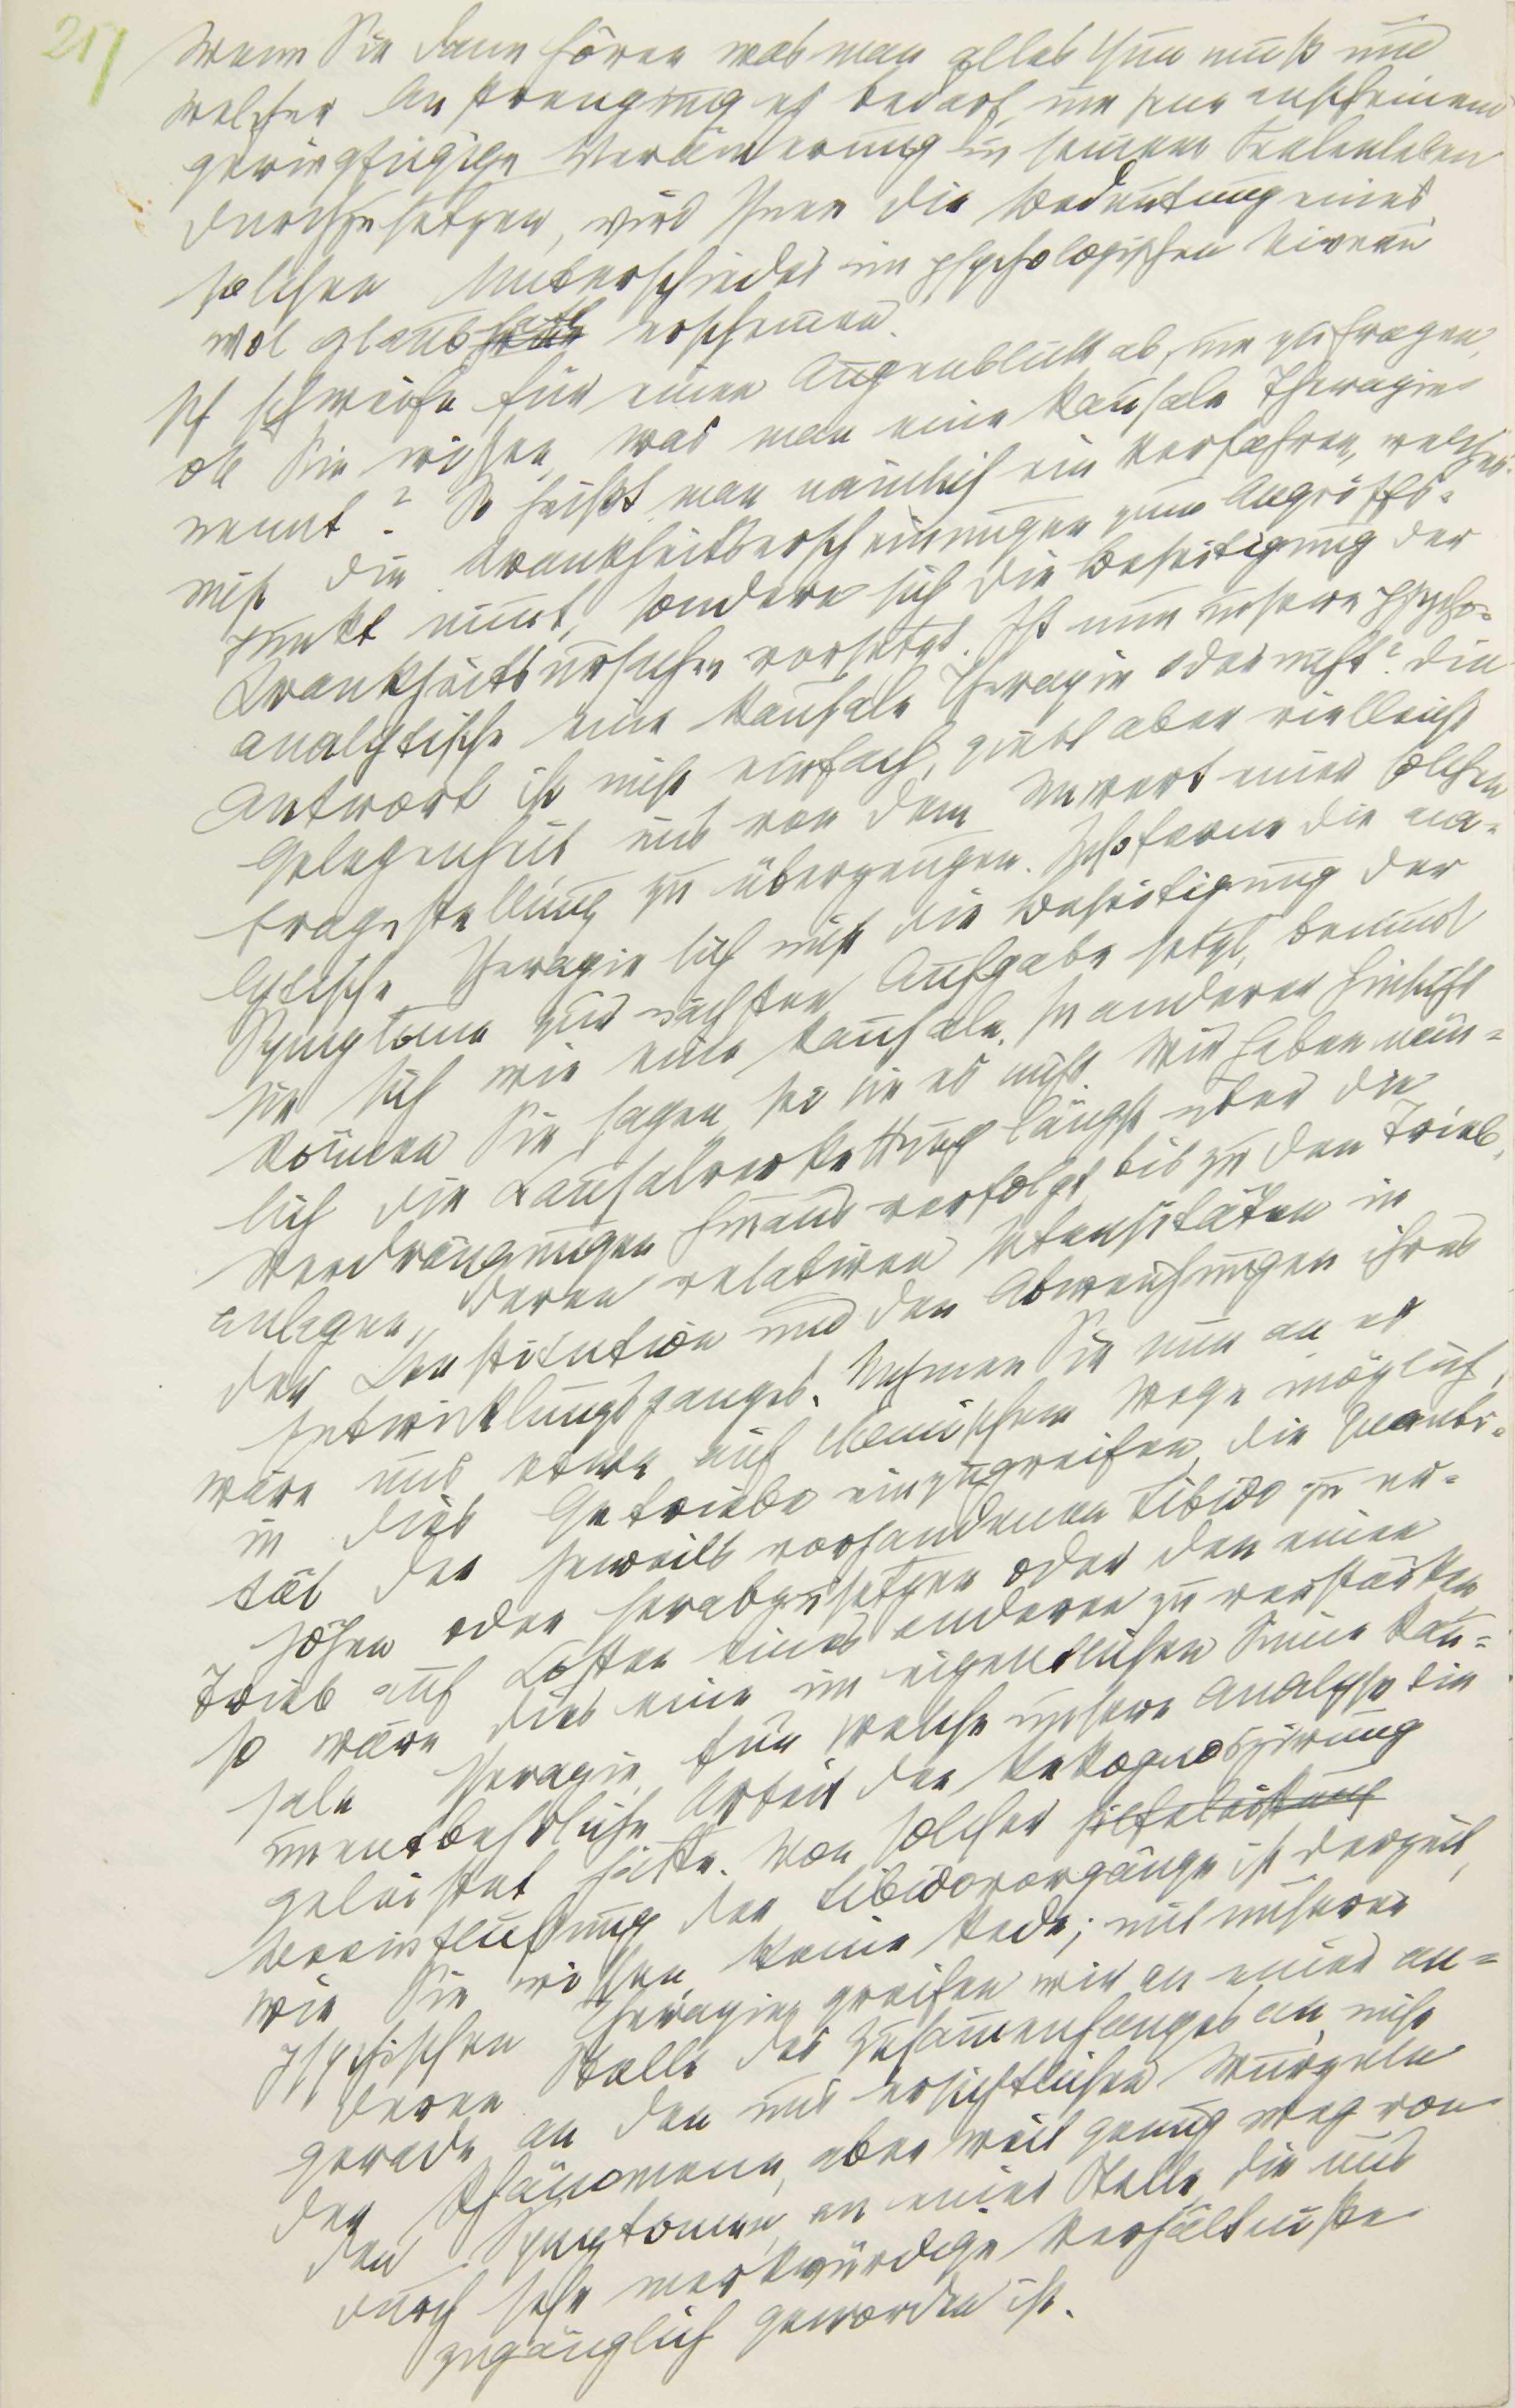 217
Wenn Sie dann hören was man alles thun muß und
welcher Anstrengung es bedarf, um jene anscheinend
geringfügige Veränderung in seinem Seelenleben
durchzusetzen, wird Ihnen die Bedeutung eines
solchen Unterschiedes im psychologischen Niveau
wol glaubhaft erscheinen.
Ich schweife für einen Augenblick ab, um zu fragen,
ob Sie wissen, was man eine kausale Therapie
nennt? So heißt man nämlich ein Verfahren, welches
nicht die Krankheitserscheinungen zum Angriffs-
punkt nimt, sondern sich die Beseitigung der
Krankheitsursachen vorsetzt. Ist nun unsere psycho-
analytische eine kausale Therapie oder nicht? Die
Antwort ist nicht einfach, giebt aber vielleicht
Gelegenheit uns von dem Unwert einer solchen
Fragestellung zu überzeugen. Insoferne die ana-
lytische Therapie sich nicht die Beseitigung der
Symptome zur nächsten Aufgabe setzt, benimmt
sie sich wie eine kausale. In anderer Hinsicht
können Sie sagen, sei sie es nicht. Wir haben näm-
lich die Kausalverkettung längst über die
Verdrängungen hinaus verfolgt bis zu den Trieb-
anlagen, deren relativen Intensitäten in
der Konstitution und den Abweichungen ihres
Entwicklungsganges. Nehmen Sie nun an, es
wäre uns etwa auf chemischem Wege möglich,
in dies Getriebe einzugreifen, die Quanti-
tät der jeweils vorhandenen Libido zu er-
höhen oder herabzusetzen oder den einen
Trieb auf Kosten eines anderen zu verstärken,
so wäre dies eine im eigentlichen Sinne kau-
sale Therapie, für welche unsere Analyse die
unentbehrliche Arbeit der Rekognoszirung
geleistet hätte. Von solcher Hilfeleistung
Beeinflußung der Libidovorgänge ist derzeit,
wie Sie wissen, keine Rede; mit unserer
psychischen Therapie greifen wir an einer an-
deren Stelle des Zusammenhanges an, nicht
gerade an den uns ersichtlichen Wurzeln
der Phänomene, aber weit genug weg von
den Symptomen, an einer Stelle, die uns
durch sehr merkwürdige Verhältniße
zugänglich geworden ist.